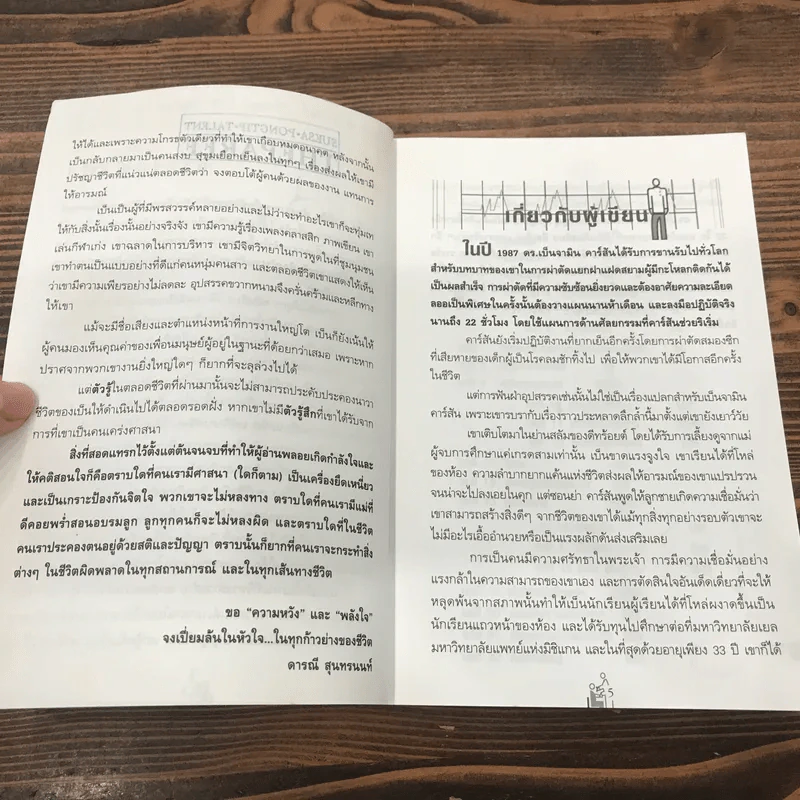 ให้ได้และเพราะความโกรธตัวเดียวที่ทำให้เขาเกือบหมดอนาคต หลังจากนั้น
เป็นกลับกลายมาเป็นคนสงบ สุขุมเยือกเย็นลงในทุกๆ เรื่องส่งผลให้เขามี
ปรัชญาชีวิตที่แน่วแน่ตลอดชีวิตว่า จงตอบโต้ผู้คนด้วยผลของงาน แทนการ
ใช้อารมณ์
เบ็นเป็นผู้ที่มีพรสวรรค์หลายอย่างและไม่ว่าจะทำอะไรเขาก็จะทุ่มเท
ให้กับสิ่งนั้นเรื่องนั้นอย่างจริงจัง เขามีความรู้เรื่องเพลงคลาสสิก ภาพเขียน เขา
เล่นกีฬาเก่ง เขาฉลาดในการบริหาร เขามีจิตวิทยาในการพูดในที่ชุมนุมชน
เขาทำตนเป็นแบบอย่างที่ดีแก่คนหนุ่มคนสาว และตลอดชีวิตเขาแสดงให้เห็น
ว่าเขามีความเพียรอย่างไม่ลดละ อุปสรรคขวากหนามจึงครั่นคร้ามและหลีกทาง
ให้เขา
แม้จะมีชื่อเสียงและตำแหน่งหน้าที่การงานใหญ่โต เบ็นก็ยังเน้นให้
ผู้คนมองเห็นคุณค่าของเพื่อนมนุษย์ผู้อยู่ในฐานะที่ด้อยกว่าเสมอ เพราะหาก
ปราศจากพวกเขางานยิ่งใหญ่ใดๆ ก็ยากที่จะลุล่วงไปได้
แต่ตัวรู้ในตลอดชีวิตที่ผ่านมานั้นจะไม่สามารถประคับประคองนาวา
ชีวิตของเบ็นให้ดำเนินไปได้ตลอดรอดฝั่ง หากเขาไม่มีตัวรู้สึกที่เขาได้รับจาก
การที่เขาเป็นคนเคร่งศาสนา
สิ่งที่สอดแทรกไว้ตั้งแต่ต้นจนจบที่ทำให้ผู้อ่านพลอยเกิดกำลังใจและ
ให้คติสอนใจก็คือตราบใดที่คนเรามีศาสนา (ใดก็ตาม) เป็นเครื่องยึดเหนี่ยว
และเป็นเกราะป้องกันจิตใจ พวกเขาจะไม่หลงทาง ตราบใดที่คนเรามีแม่ที่
ดีคอยพร่ำสอนอบรมลูก ลูกทุกคนก็จะไม่หลงผิด และตราบใดที่ในชีวิต
คนเราประคองตนอยู่ด้วยสติและปัญญา ตราบนั้นก็ยากที่คนเราจะกระทำสิ่ง
ต่างๆ ในชีวิตผิดพลาดในทุกสถานการณ์ และในทุกเส้นทางชีวิต
ขอ “ความหวัง” และ “พลังใจ”
จงเปี่ยมล้นในหัวใจ...ในทุกก้าวย่างของชีวิต
ดารณี สุนทรนนท์
เกี่ยวกับผู้เขียน
ในปี 1987 ดร.เบ็นจามิน คาร์สันได้รับการขานรับไปทั่วโลก
สำหรับบทบาทของเขาในการผ่าตัดแยกฝาแฝดสยามผู้มีกะโหลกติดกันได้
เป็นผลสำเร็จ การผ่าตัดที่มีความซับซ้อนยิ่งยวดและต้องอาศัยความละเอียด
ลออเป็นพิเศษในครั้งนั้นต้องวางแผนนานห้าเดือน และลงมือปฏิบัติจริง
นานถึง 22 ชั่วโมง โดยใช้แผนการด้านศัลยกรรมที่คาร์สันช่วยริเริ่ม
คาร์สันยังเริ่มปฏิบัติงานที่ยากเย็นอีกครั้งโดยการผ่าตัดสมองซีก
ที่เสียหายของเด็กผู้เป็นโรคลมชักทิ้งไป เพื่อให้พวกเขาได้มีโอกาสอีกครั้ง
ในชีวิต
แต่การฟันฝ่าอุปสรรคเช่นนั้นไม่ใช่เป็นเรื่องแปลกสำหรับเบ็นจามิน
คาร์สัน เพราะเขารบรากับเรื่องราวประหลาดลึกล้ำนี้มาตั้งแต่เขายังเยาว์วัย
เขาเติบโตมาในย่านสลัมของดีทร้อยต์ โดยได้รับการเลี้ยงดูจากแม่
ผู้จบการศึกษาแค่เกรดสามเท่านั้น เป็นขาดแรงจูงใจ เขาเรียนได้ที่โหล่
ของห้อง ความลำบากยากแค้นแห่งชีวิตส่งผลให้อารมณ์ของเขาแปรปรวน
จนน่าจะไปลงเอยในคุก แต่ซอนย่า คาร์สันพูดให้ลูกชายเกิดความเชื่อมั่นว่า
เขาสามารถสร้างสิ่งดีๆ จากชีวิตของเขาได้แม้ทุกสิ่งทุกอย่างรอบตัวเขาจะ
ไม่มีอะไรเอื้ออำนวยหรือเป็นแรงผลักดันส่งเสริมเลย
การเป็นคนมีความศรัทธาในพระเจ้า การมีความเชื่อมั่นอย่าง
แรงกล้าในความสามารถของเขาเอง และการตัดสินใจอันเด็ดเดี่ยวที่จะให้
หลุดพ้นจากสภาพนั้นทำให้เบ็นนักเรียนผู้เรียนได้ที่โหล่ผงาดขึ้นเป็น
นักเรียนแถวหน้าของห้อง และได้รับทุนไปศึกษาต่อที่มหาวิทยาลัยเยล
มหาวิทยาลัยแพทย์แห่งมิชิแกน และในที่สุดด้วยอายุเพียง 33 ปี เขาก็ได้